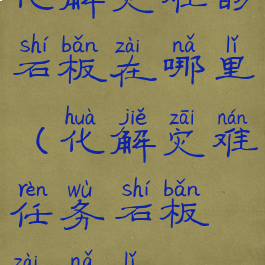 化解灾难的
shí bǎn zài nǎ lǐ
石板在哪里
huà jiě zāi nán
（化解灾难
rèn wù shí bǎn
任务石板
zài nǎ lǐ